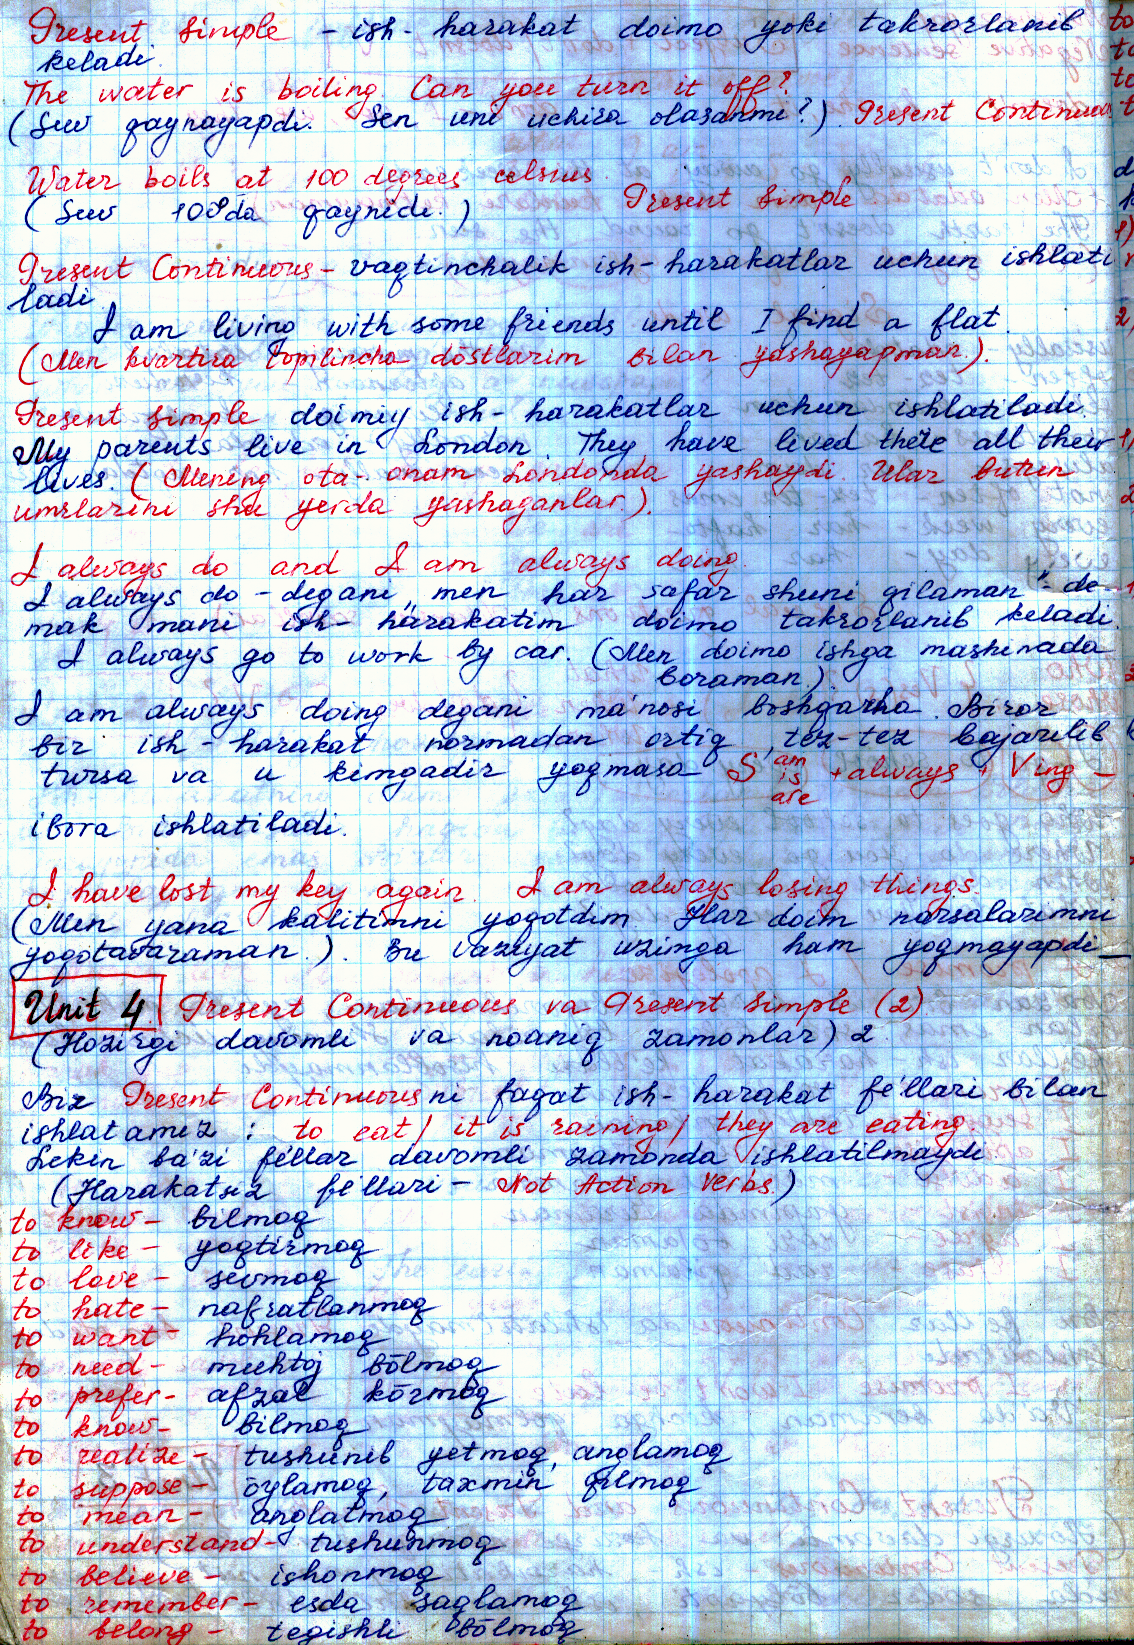 Present Simple - ish-harakat doimo yoki takrorlanib
keladi.
The water is boiling. Can you turn it off?
(Suv qaynayapdi. Sen uni uchira olasanmi?). Present Continuous
Water boils at 100 degrees celsius.
(Suv 100° da qaynidi.) Present Simple
Present Continuous - vaqtinchalik ish-harakatlar uchun ishlati
ladi
I am living with some friends until I find a flat.
(Men kvartira topilincha dōstlarim bilan yashayapman.).
Present Simple doimiy ish-harakatlar uchun ishlatiladi.
My parents live in London. They have lived there all their
lives. (Mening ota-onam Londonda yashaydi. Ular butun
umrlarini shu yerda yashaganlar.).
I always do and I am always doing.
I always do - degani „men har safar shuni qilaman" de-
mak mani ish-harakatim doimo takrorlanib keladi.
I always go to work by car. (Men doimo ishga mashinada
boraman.)
I am always doing degani ma'nosi boshqarha. Biror
bir ish-harakat normadan ortiq, tez-tez bajarilib
tursa va u kimgadir yoqmasa S am + always + Ving -
is
are
ibora ishlatiladi.
I have lost my key again. I am always losing things.
(Men yana kalitimni yoqotdim. Har doim narsalarimni
yoqotavaraman.). Bu vaziyat uzimga ham yoqmayapdi_
Unit 4 Present Continuous va Present Simple (2)
(Hozirgi davomli va noaniq zamonlar) 2
Biz Present Continuous ni faqat ish-harakat fe'llari bilan
ishlatamiz: to eat/ it is raining/ they are eating.
Lekin ba'zi fe'llar davomli zamonda ishlatilmaydi
(Harakatsiz fe'llari - Not Action Verbs.)
to know - bilmoq
to like - yoqtirmoq
to love - sevmoq
to hate - nafratlanmoq
to want - hohlamoq
to need - muhtoj bōlmoq
to prefer - afzal kōrmoq
to know - bilmoq
to realize - tushunib yetmoq, anglamoq
to suppose - ōylamoq, taxmin qilmoq
to mean - anglatmoq
to understand - tushunmoq
to believe - ishonmoq
to remember - esda saqlamoq
to belong - tegishli bōlmoq